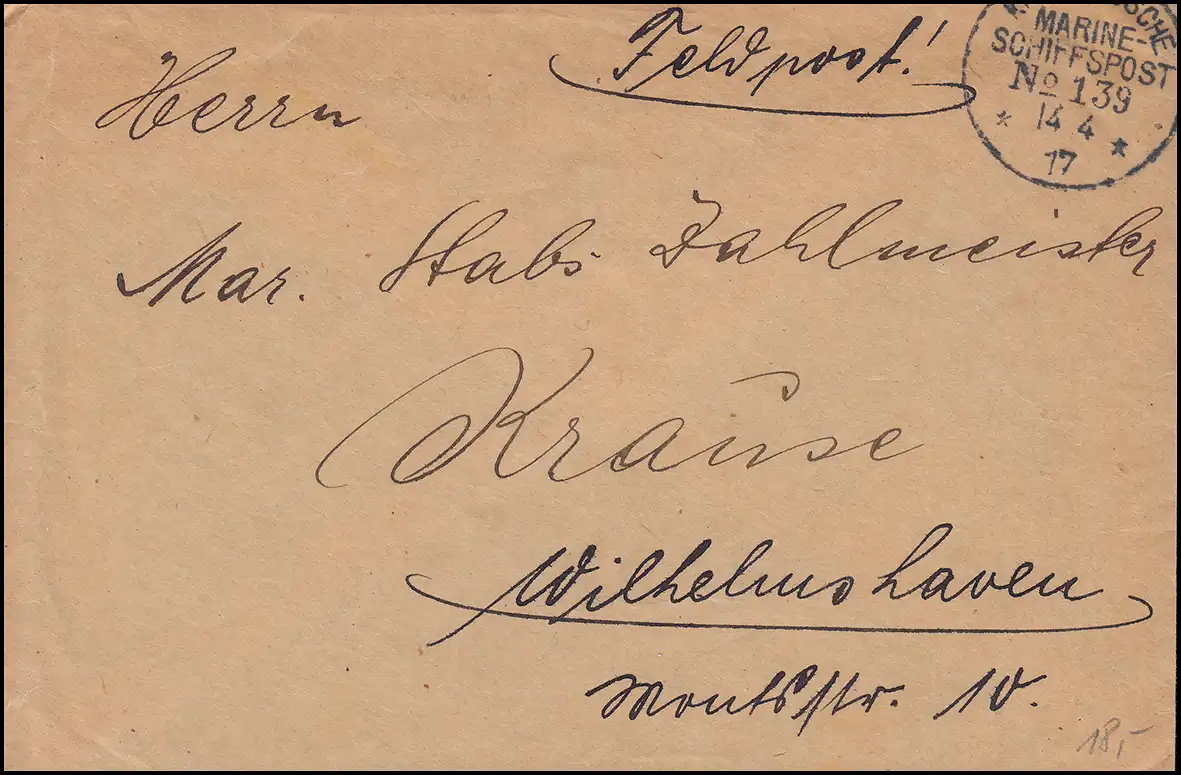 Feldpost!
MARINE-
SCHIFFSPOST
No 139
* 14 4 *
17
Herrn
Mar. Stabs Zahlmeister
Krause
Wilhelmshaven
Montsstr. 10.
18,-